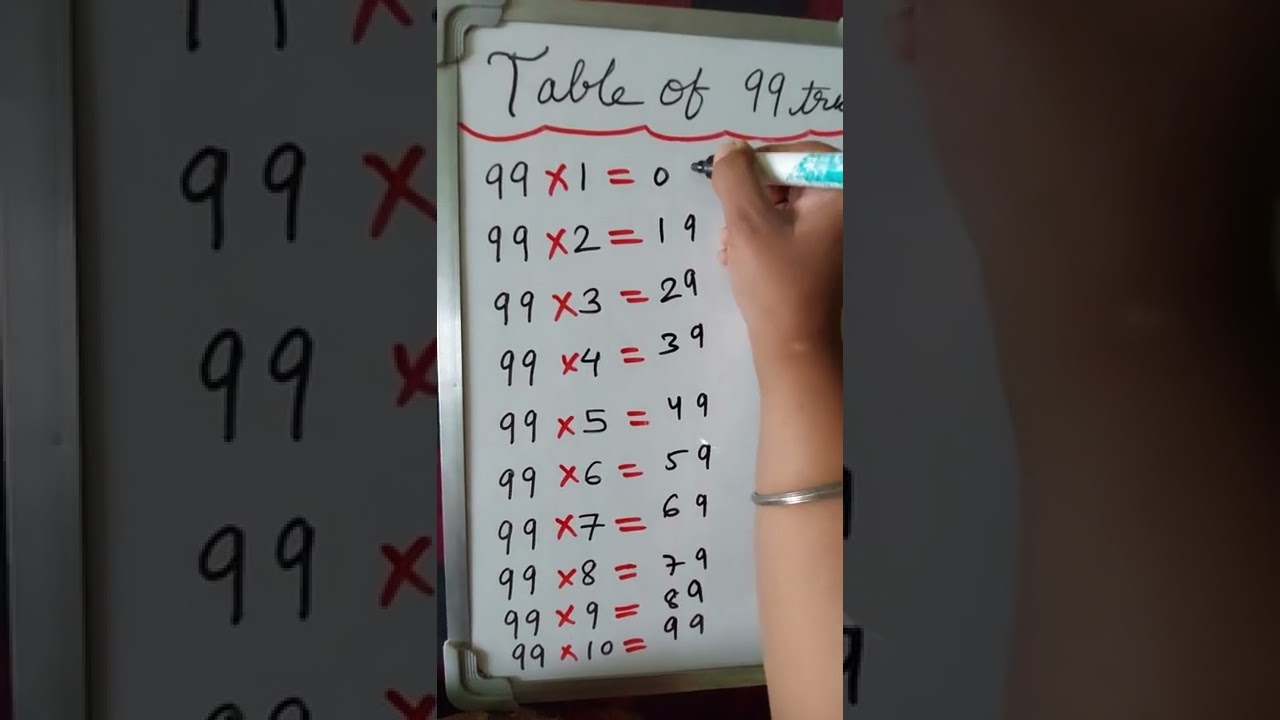 Table of 99
99 × 1 = 0
99 × 2 = 19
99 × 3 = 29
99 × 4 = 39
99 × 5 = 49
99 × 6 = 59
99 × 7 = 69
99 × 8 = 79
99 × 9 = 89
99 × 10 = 99